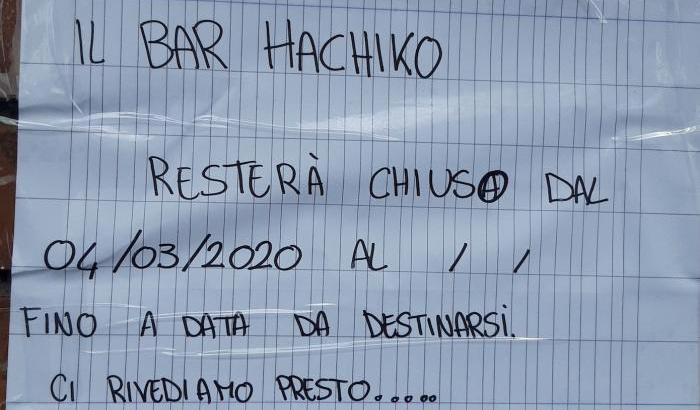 IL BAR HACHIKO
RESTERÀ CHIUSO DAL
04/03/2020 AL / /
FINO A DATA DA DESTINARSI.
CI RIVEDIAMO PRESTO.....